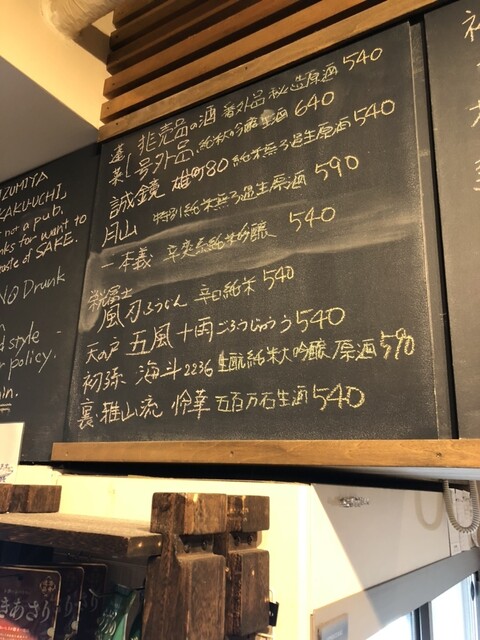 IZUMIYA
KAKU-UCHI,
not a pub.
want to
taste of SAKE.
NO Drunk
style
policy.
蓬莱 非売品の酒 番外品 秘造原酒 540
号外品 純米吟醸生酒 640
誠鏡 雄町80 純米無ろ過生原酒 540
月山 特別純米無ろ過生原酒 590
一本義 辛爽系純米吟醸 540
栄冨士 風刃ふうじん 辛口純米 540
天の戸 五風十雨ごふうじゅうう 540
初孫 海斗2236 生酛純米大吟醸原酒 590
裏・雅山流 怜華 五百万石生酒 540
きあさり